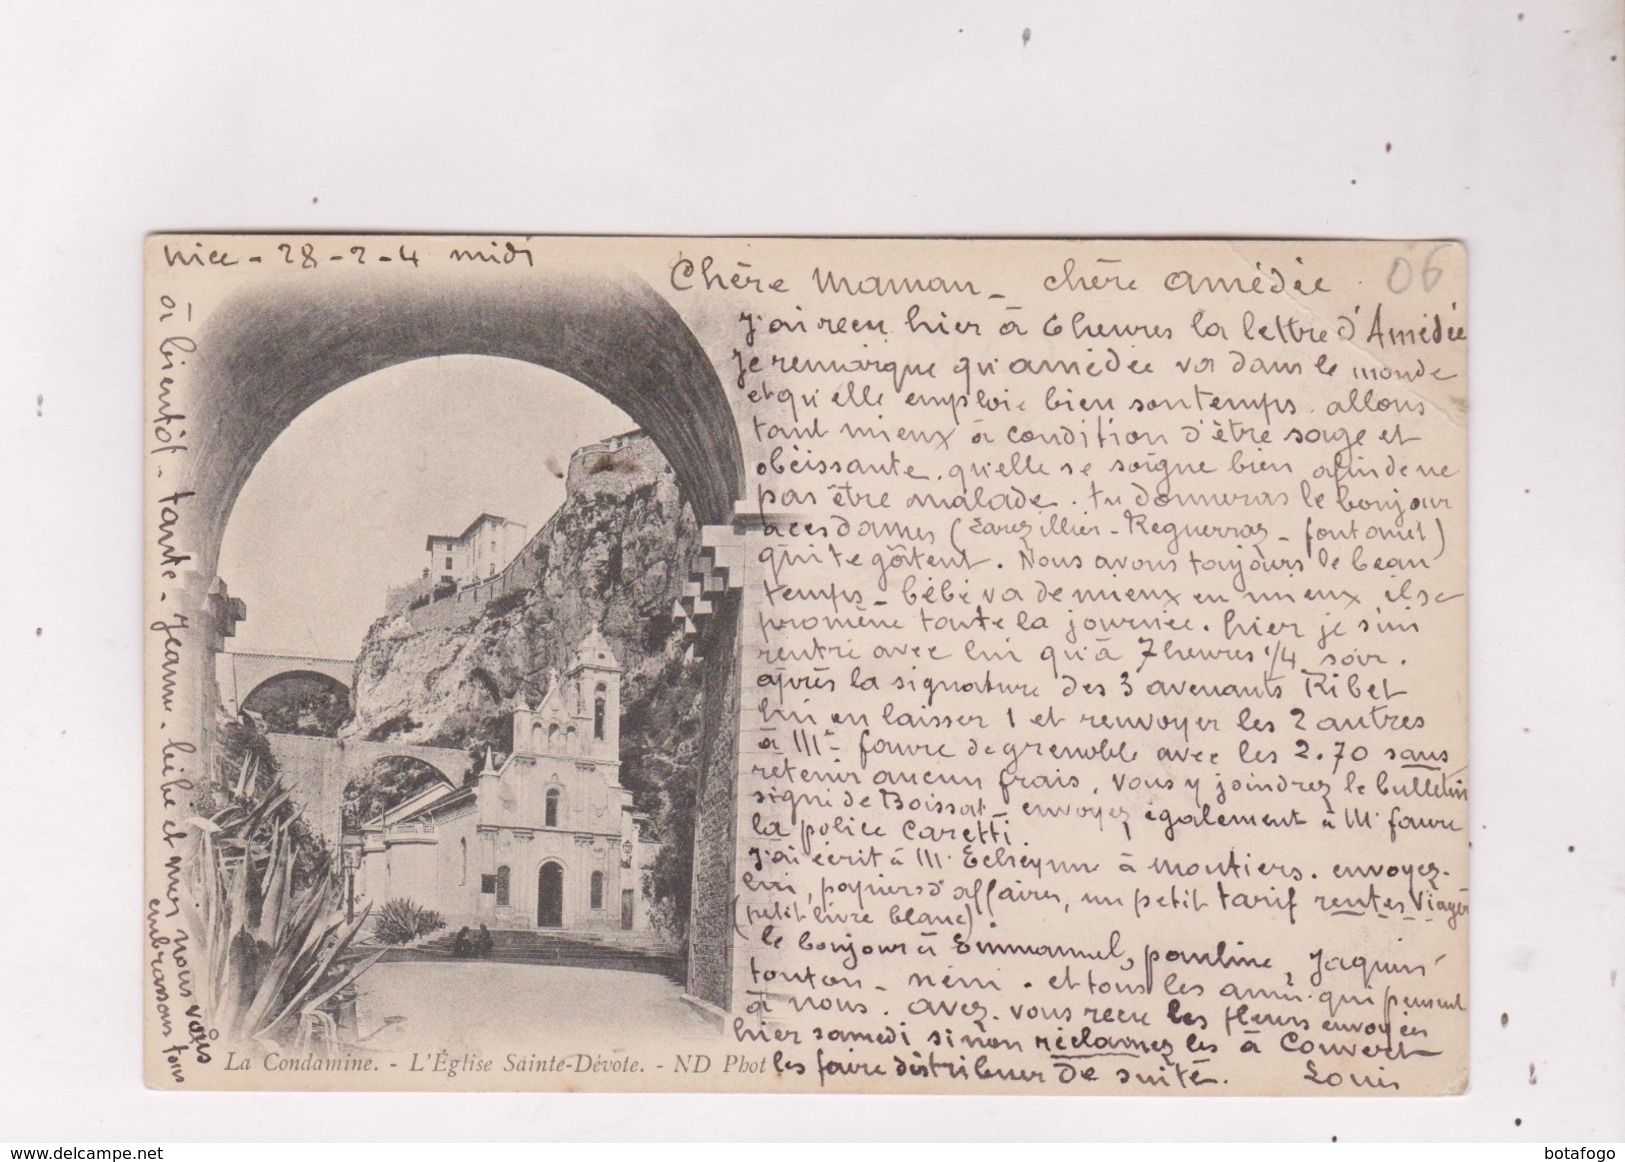 nice - 28 - 2 - 4 midi
06
Chère Maman - chère Amédée
J'ai recu hier à 6 heures la lettre d'Amédée
Je remarque qu'amédée va dans le monde
et qu'elle emploie bien son temps. allons
tant mieux à condition d'être sage et
obéissante. qu'elle se soigne bien afin de ne
pas être malade. tu donneras le bonjour
a ces dames (
qui te gâtent. Nous avons toujours le beau
temps - bébé va de mieux en mieux il se
promène toute la journée. hier je suis
rentré avec lui qu'à 7 heures 1/4 soir.
après la signature des 3 avenants Ribet
lui en laisser 1 et renvoyer les 2 autres
à Mr faure de grenoble avec les 2.70 sans
retenir aucun frais. Vous y joindrez le bulletin
signé de Boissat envoyez également à M. faure
la police Caretti
J'ai écrit à M. à Moutiers. envoyez-
lui, papiers d'affaires, un petit tarif rentes Viagèr
(petit livre blanc)
le bonjour à Emmanuel, pauline,
tonton - néni. et tous les amis qui pensent
à nous. avez-vous recu les fleurs envoyées
hier samedi sinon réclamez les à Couvert
les faire distribuer de suite. Louis
à bientôt - tante - Jeanne - bébé et moi nous vous
embrassons tous
La Condamine. - L'Église Sainte-Dévote. - ND Phot
delcampe.net
botafogo